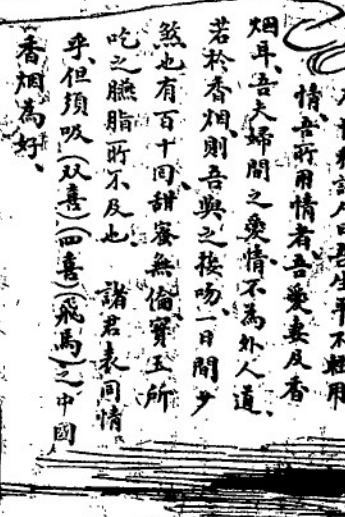 語人曰吾生平不輕用
情、吾所用情者、吾愛妻及香
烟耳、吾夫婦間之愛情、不為外人道、
若於香烟、則吾與之接吻、一日間少
煞也有百十回、甜蜜無倫、寶玉所
吃之臙脂所不及也、諸君表同情
乎、但須吸(双喜)(四喜)(飛馬)之中國
香烟為好、